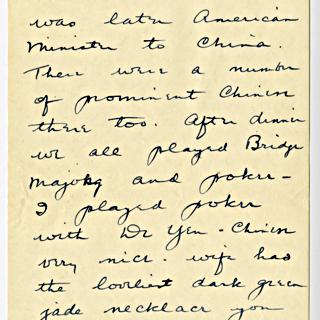 was later American
Minister to China.
There were a number
of prominent Chinese
there too. After dinner
we all played Bridge
Majokg and poker -
I played poker
with Dr Yen - Chinese
very nice. wife has
the loveliest dark green
jade necklace you